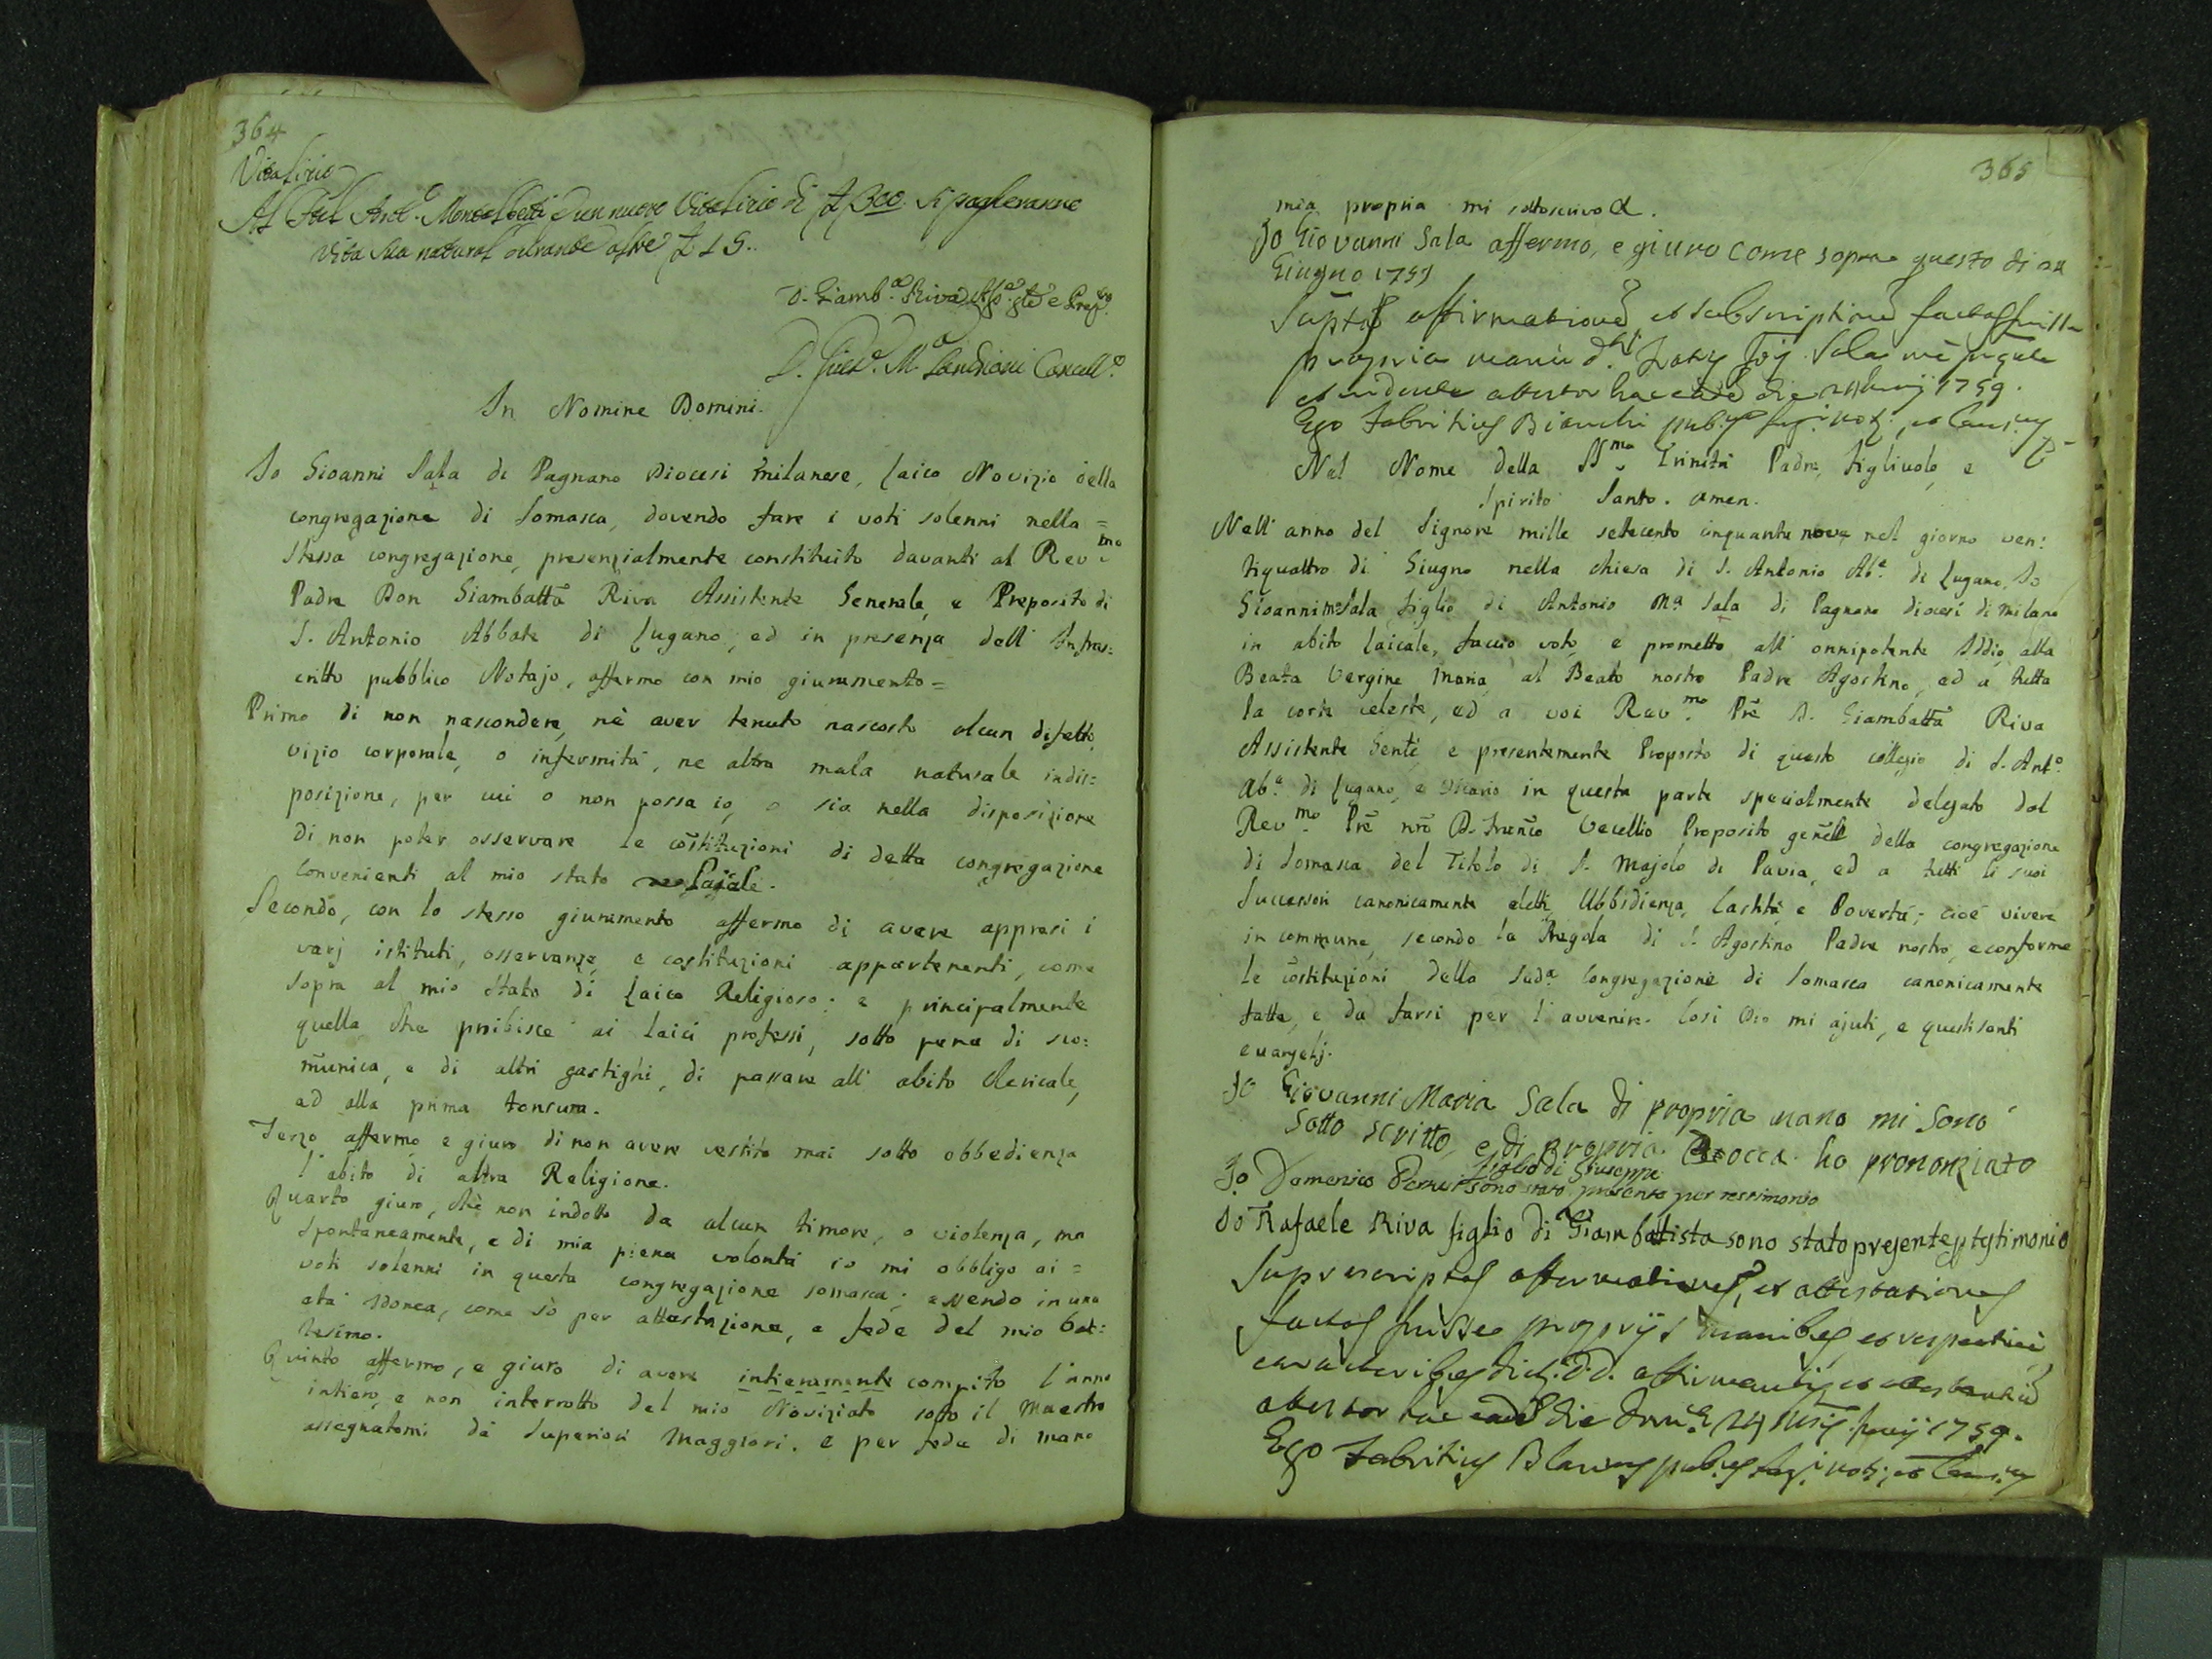 364
Vitalizio
Al Frãl Ant.º d'un nuovo Vitalizio di £ 300. si pagheranno
vita sua natural durante altre £ 15..
D. Giamb.ª Riva e Prep.to
D. M.ª Cancell.º
In Nomine Domini.
Io Gioanni Sala di Pagnano Diocesi Milanese, Laico Novizio della
congregazione di Somasca, dovendo fare i voti solenni nella =
stessa congregazione, presenzialmente constituito davanti al Rev.mo
Padre Don Giambattã Riva Assistente Generale, e Preposito di
S. Antonio Abbate di Lugano, ed in presenza dell' Infras:
critto pubblico Notajo, affermo con mio giuramento =
Primo di non nascondere, nè aver tenuto nascosto alcun difetto,
vizio corporale, o infermità, ne altra mala naturale indis:
posizione, per cui o non possa io, o sia nella disposizione
di non poter osservare le cõstituzioni di detta congregazione
convenienti al mio stato Laicale.
Secondo, con lo stesso giuramento affermo di avere appresi i
varj istituti, osservanze, e costituzioni appartenenti, come
sopra al mio stato di Laico Religioso: e principalmente
quella che proibisce ai laici professi, sotto pena di sco:
mũnica, e di altri gastighi, di passare all' abito clericale,
ad alla prima tonsura.
Terzo affermo, e giuro di non avere vestito mai sotto obbedienza
l' abito di altra Religione.
Quarto giuro, che non indotto da alcun timore, o violenza, ma
spontaneamente, e di mia piena volontà io mi obbligo ai =
voti solenni in questa congregazione somasca; essendo in una
età idonea, come sò per attestazione, e fede del mio bat:
tesimo.
Quinto affermo, e giuro di avere intieramente compito l'anno
intiero, e non interrotto del mio Noviziato sotto il Maestro
assegnatomi da Superiori Maggiori. e per fede di mano
365
mia propria mi sottoscrivo.
Io Giovanni Sala affermo, e giuro come sopra questo di 24
Giugno 1759
affirmationẽ et subscriptionẽ factas fuisse
propria manu d. Sala mẽ
et vidente attestor hac eadẽ die 24 Junij 1759.
Ego Fabritius Bianchi pub.us not.
Nel Nome della SS.ma Trinità Padre, Figliuolo, e
Spirito Santo. Amen.
Nell' anno del Signore mille settecento cinquanta nove nel giorno ven:
tiquattro di Giugno nella chiesa di S. Antonio Ab.e di Lugano, Io
Gioanni M.ª Sala figlio di Antonio M.ª Sala di Pagnano diocesi di Milano
in abito laicale, faccio voto, e prometto all' onnipotente Iddio, alla
Beata Vergine Maria, al Beato nostro Padre Agostino, ed a tutta
la corte celeste, ed a voi Rev.mo Prẽ D. Giambattã Riva
Assistente Genlẽ, e presentemente Proposto di questo collegio di S. Ant.º
Ab.e di Lugano, e Vicario in questa parte specialmente delegato dal
Rev.mo Prẽ nrõ D. Francõ Vecellio Proposito genẽle della congregazione
di Somasca del Titolo di S. Majolo di Pavia, ed a tutti li suoi
Successori canonicamente eletti, Ubbidienza, Castità e Povertà; cioè vivere
in commune, secondo la Regola di S. Agostino Padre nostro, e conforme
le cõstituzioni della Sud.ª Congregazione di Somasca canonicamente
fatte, e da farsi per l' avvenire. Così Dio mi ajuti, e questi santi
evangelj.
Io Giovanni Maria Sala di propria mano mi sono
sotto scritto, e di propria Bocca ho prononziato
Io Domenico figlio di Giuseppe sono stato presente per testimonio
Io Rafaele Riva figlio di Giambattista sono stato presente p testimonio
Suprascriptas affirmationes, et attestationes
factas fuisse proprijs manibus, et respectivè
caracteribus dict. d.d. affirmantis, et attestantiũ
attestor hac eadẽ die 24 Junij 1759.
Ego Fabritius Blancus pub.us not.